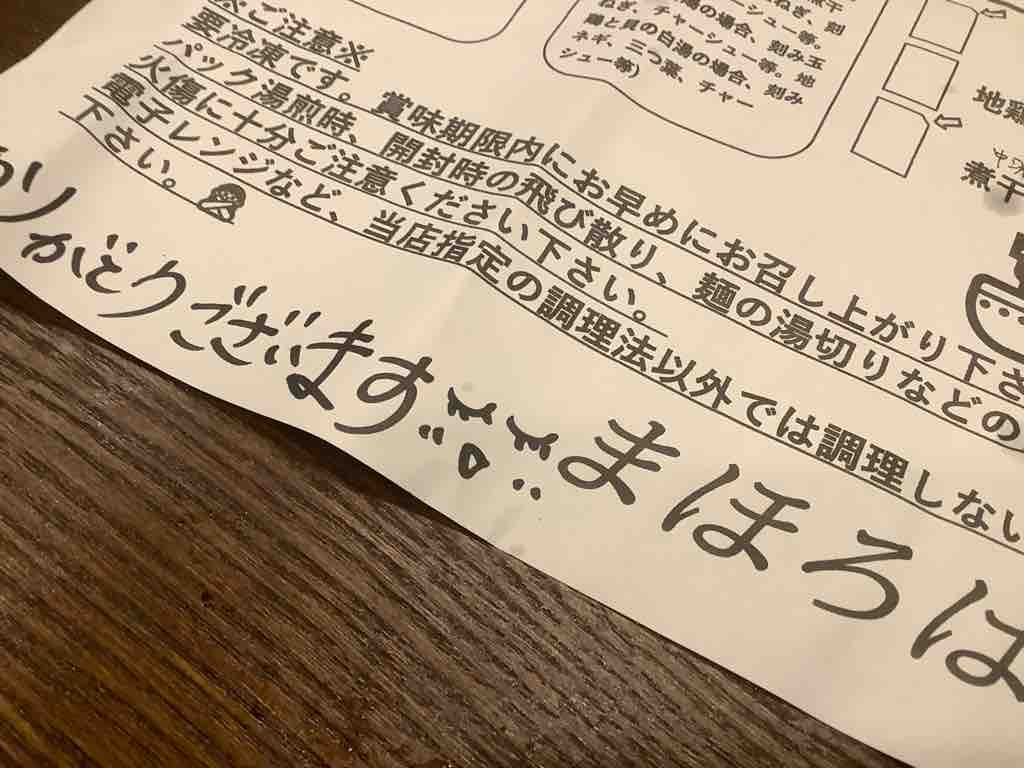 煮干
ねぎ、刻
ーシュー等。
湯の場合、刻み玉
ねぎ、チャーシュー等。地
鶏と貝の白湯の場合、刻み
ネギ、三つ葉、チャー
シュー等)
地鶏
煮干
※ご注意※
要冷凍です。賞味期限内にお早めにお召し上がり下さ
パック湯煎時、開封時の飛び散り、麺の湯切りなどの
火傷に十分ご注意ください下さい。
電子レンジなど、当店指定の調理法以外では調理しない
下さい。
りがとうございます
まほろば